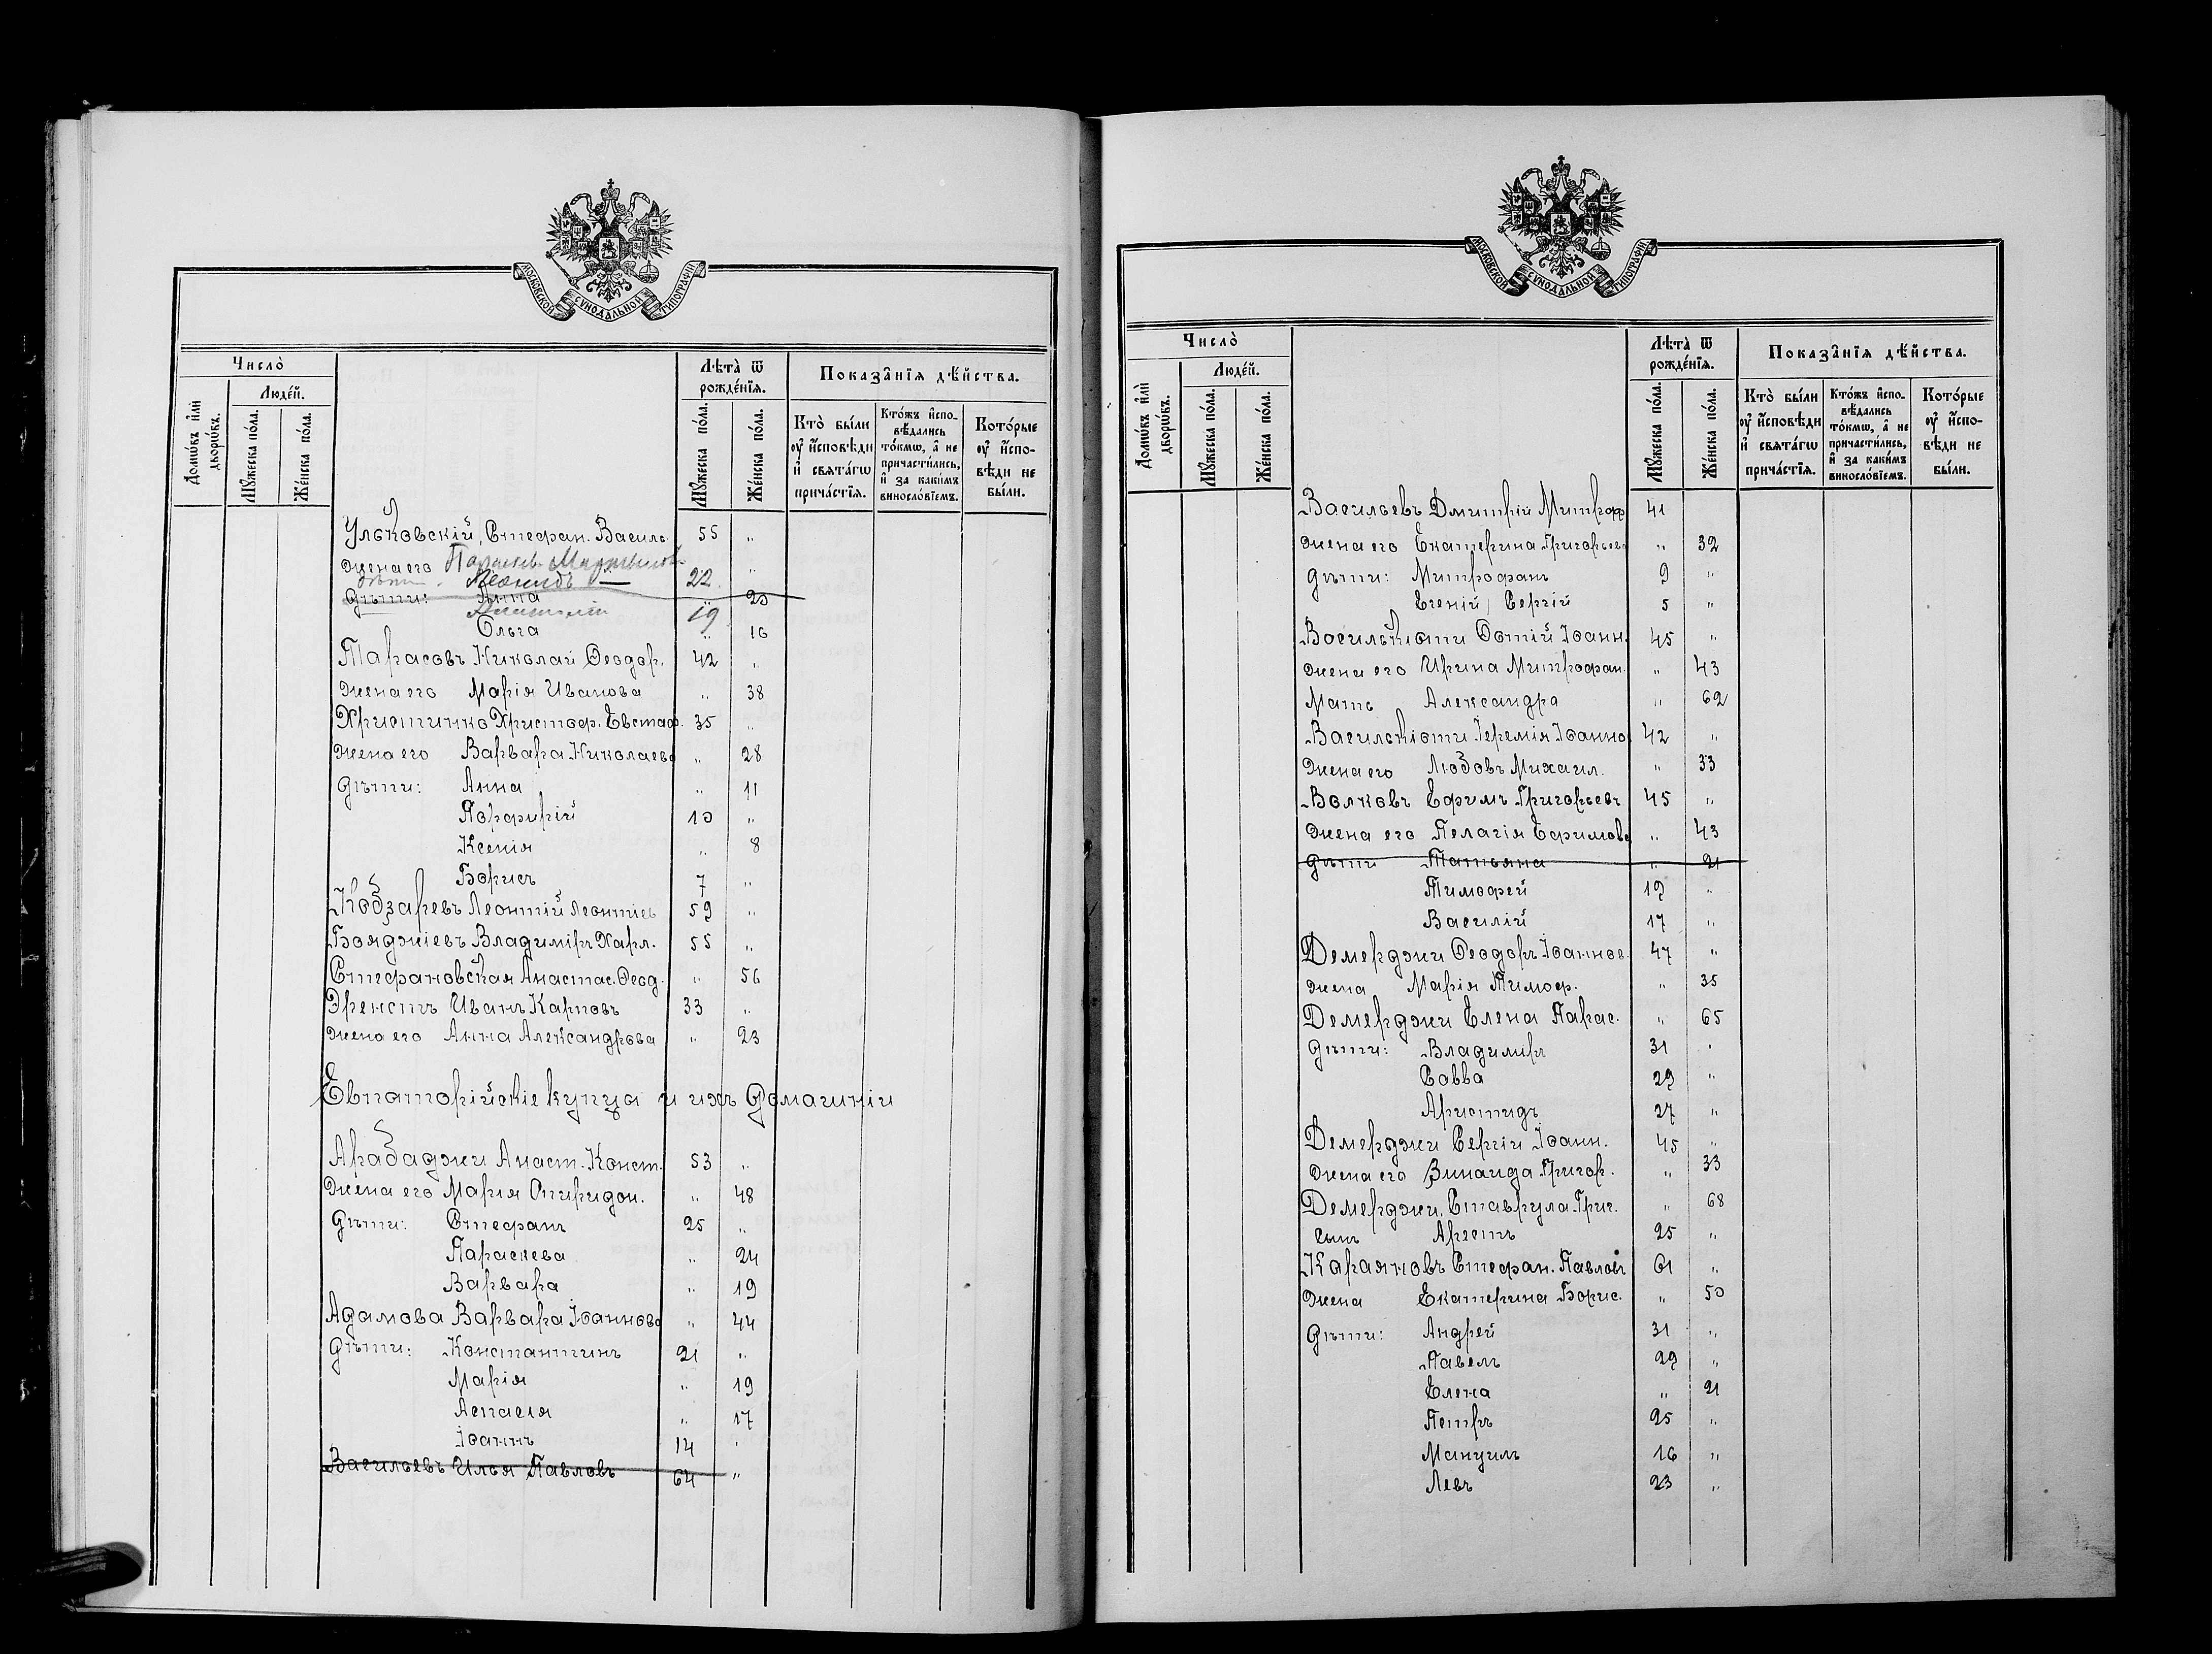 МОСКОВСКОЙ СѴНОДАЛЬНОЙ ТИПОГРАФІИ
Число̀
Людéй.
Домѡ́въ и҆лѝ дворѡ́въ.
Мꙋ́жеска по́ла.
Же́нска по́ла.
Лѣта̀ ѿ рожде́нїѧ.
Мꙋ́жеска по́ла.
Же́нска по́ла.
Показа̂нїѧ дѣ́йства.
Кто̀ бы́ли ᲂу҆ и҆́сповѣди и҆ свѧта́гѡ прича́стїѧ.
Кто́жъ и҆спо-вѣ́дались то́кмѡ, а҆ не причасти́лись, и҆ за каки́мъ винослóвїемъ.
Кото́рые ᲂу҆ и҆́спо-вѣди не бы́ли.
Улоковскій, Стефан. Василь. 55 „
Жена его „
Леонидъ — 22
Дѣти: Анна „ 20
19
Ольга „ 16
Тарасовъ Николай Ѳеодор. 42 „
Жена его Марія Иванова „ 38
Христинко Христоф. Евстаф. 35 „
Жена его Варвара Николаева „ 28
Дѣти: Анна „ 11
Порфирій 10 „
Ксенія „ 8
Борисъ 7 „
Кобзаревъ Леонтій Леонтіев 59 „
Бояджіевъ Владиміръ Харл. 55 „
Стефановская Анастас. Ѳеод. „ 56
Эренстъ Иванъ Карповъ 33 „
Жена его Анна Александрова „ 23
Евпаторійскіе купца и ихъ домашніи
Арабаджи Анаст. Конст. 53 „
Жена его Марія Спиридон. „ 48
Дѣти: Стефанъ 25 „
Параскева „ 24
Варвара „ 19
Адамова Варвара Іоаннова „ 44
Дѣти: Константинъ 21 „
Марія „ 19
Аспасія „ 17
Іоаннъ 14 „
Васильевъ Илья Павловъ 64 „
МОСКОВСКОЙ СѴНОДАЛЬНОЙ ТИПОГРАФІИ
Число̀
Людéй.
Домѡ́въ и҆лѝ дворѡ́въ.
Мꙋ́жеска по́ла.
Же́нска по́ла.
Лѣта̀ ѿ рожде́нїѧ.
Мꙋ́жеска по́ла.
Же́нска по́ла.
Показа̂нїѧ дѣ́йства.
Кто̀ бы́ли ᲂу҆ и҆́сповѣди и҆ свѧта́гѡ прича́стїѧ.
Кто́жъ и҆спо-вѣ́дались то́кмѡ, а҆ не причасти́лись, и҆ за каки́мъ винослóвїемъ.
Кото́рые ᲂу҆ и҆́спо-вѣди не бы́ли.
Васильевъ Дмитрій Митроф 41
Жена его Екатерина Григорьев „ 32
Дѣти: Митрофанъ 9 „
Евгеній, Сергій 5 „
Василькіоти Фотій Іоанн. 45 „
Жена его Ирина Митрофан. „ 43
Мать Александра „ 62
Василькіоти Іеремія Іоанно 42 „
Жена его Любовь Михаил. „ 33
Волковъ Ефимъ Григорьевъ 45 „
Жена его Пелагія Ефимова „ 43
Дѣти Татьяна „ 21
Тимофей 19 „
Василій 17 „
Демерджи Ѳеодоръ Іоаннов. 47 „
Жена Марія Тимоф. „ 35
Демерджи Елена Парас. „ 65
Дѣти: Владиміръ 31 „
Савва 29 „
Аристидъ 27 „
Демерджи Сергій Іоанн. 45 „
Жена его Зинаида Григор. „ 33
Демерджи, Ставрула Григ. „ 68
Сынъ Арестъ 25 „
Караяновъ Стефан. Павловъ 61 „
Жена Екатерина Борис. „ 50
Дѣти: Андрей 31 „
Павелъ 29 „
Елена „ 21
Петръ 25 „
Мануилъ 16 „
Левъ 23 „